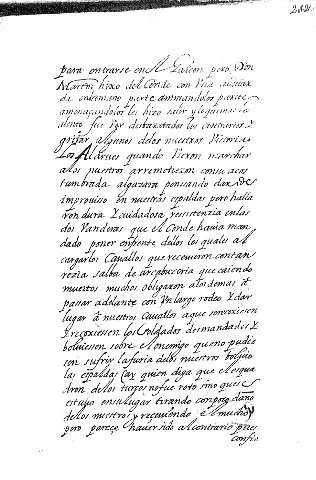 para entrarse en el Galeon pero Don
Martin hixo del Conde con una
de en la mano parte animandolos parte
amenaçandolos les hizo
fue Ver desbaratados los contrarios y
gritar algunos delos nuestros Victoria
Los Alarues quando Vieron marchar
alos nuestros arremetieron con su acos
tumbrada algazara pensando dar de
improuiso en nuestras espaldas pero halla
ron dura y cuidadosa resistenzia en las
dos Vanderas que el Conde hauia man
dado poner enfrente delos les quales al
cargarlos Cauallos que receuieron con tan
rezia salba de arcabuceria que caiendo
muertos muchos obligaron alos demas a
passar adelante con Un largo rodeo y dar
lugar a nuestros Cauallos a que
y recoxiesen los Soldados desmandados y
boluiesen sobre el enemigo que no pudo
sufrir la furia delos nuestros boluio
las espaldas ay quien diga que el esqua
dron de los turcos no fue roto sino que se
estuuo en su lugar tirando con poco daño
de los nuestros y receuiendo el mucho
pero parece hauer sido al contrario pues
confie